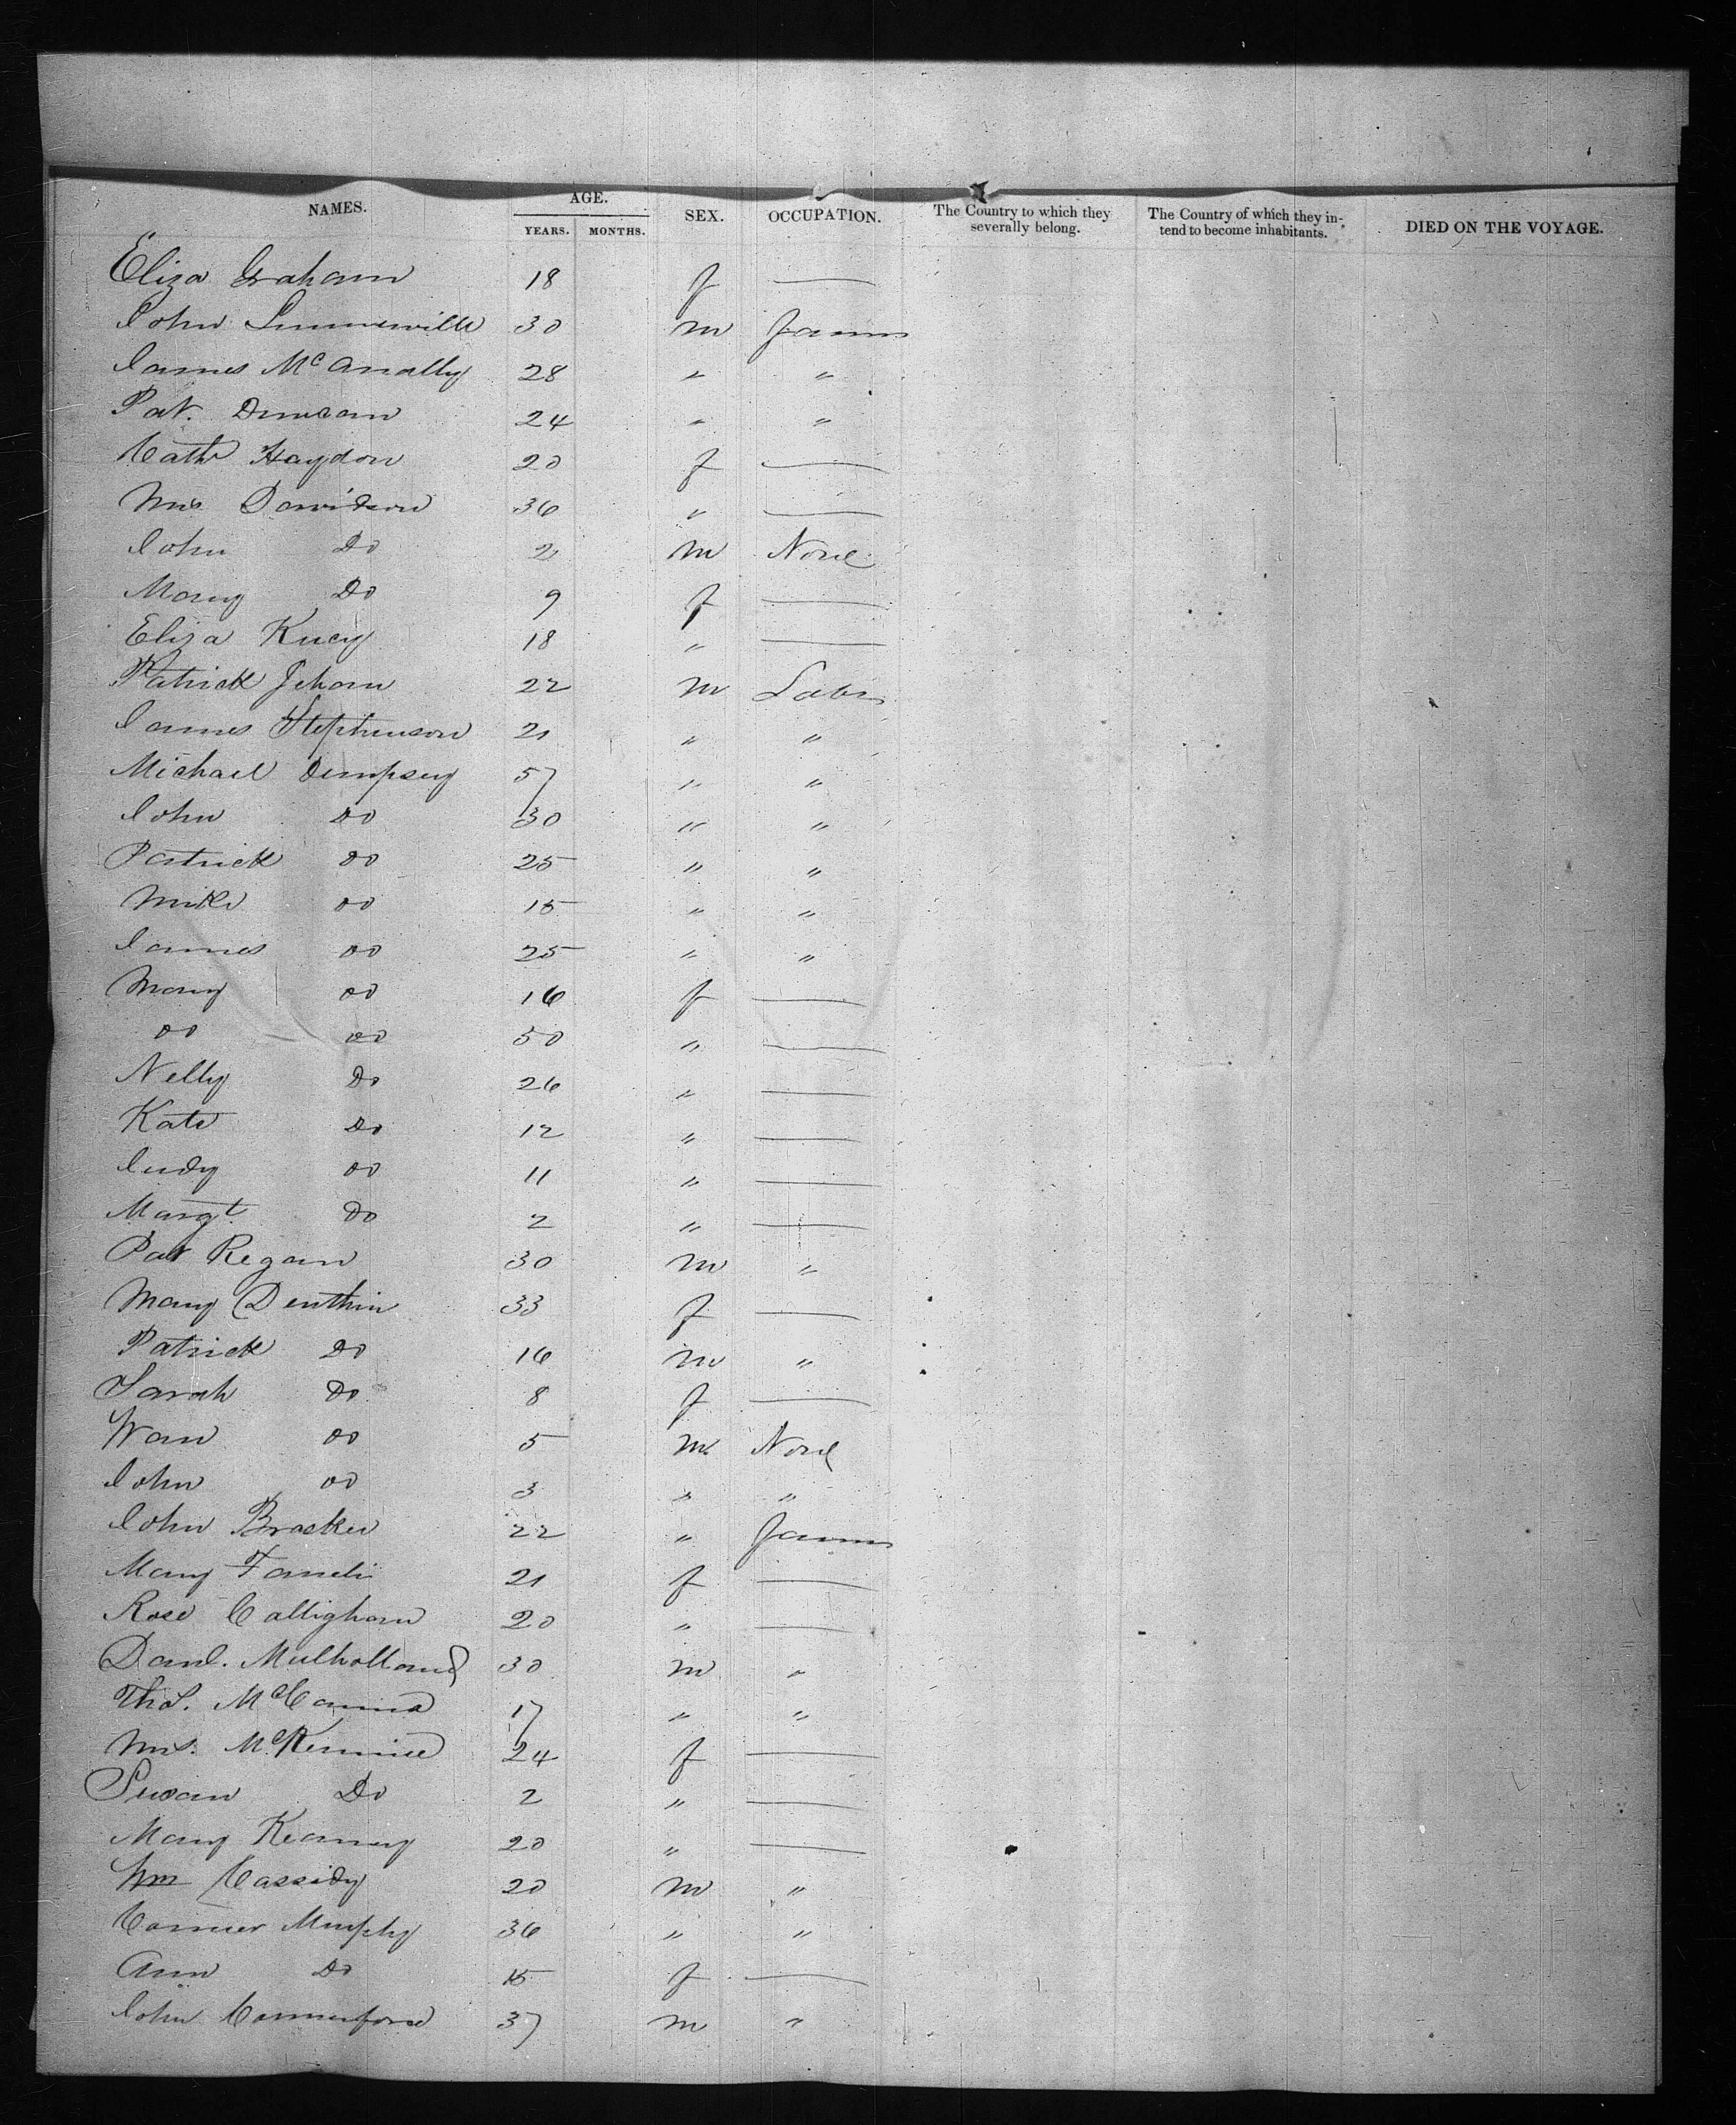 NAMES. AGE. YEARS. MONTHS. SEX. OCCUPATION. The Country to which they severally belong. The Country of which they intend to become inhabitants. DIED ON THE VOYAGE.
Eliza Graham 18 f —
John 30 m Farmer
James McAnally 28 " "
Pat. Duncan 24 " "
Cath Haydon 20 f —
Mrs Davidson 36 " —
John Do 2 m None
Mary Do 9 f —
Eliza 18 " —
Patrick 22 m Labr
James Stephenson 21 " "
Michael Dempsey 57 " "
John Do 30 " "
Patrick Do 25 " "
Mike Do 15 " "
James Do 25 " "
Mary Do 16 f —
Do Do 50 " —
Nelly Do 26 " —
Kate Do 12 " —
Judy Do 11 " —
Margt. Do 2 " —
Pat Regan 30 m "
Mary Denthin 33 f —
Patrick Do 16 m "
Sarah Do 8 f —
Do 5 m None
John Do 3 " "
John Bracken 22 " Farmer
Mary 21 f —
Rose Callighan 20 " —
Danl. Mulholland 30 m "
Thos. McCanna 17 " "
Mrs. 24 f —
Susan Do 2 " —
Mary Kearney 20 " —
Wm Cassidy 20 m "
Murphy 36 " "
Ann Do 15 f —
John 37 m "